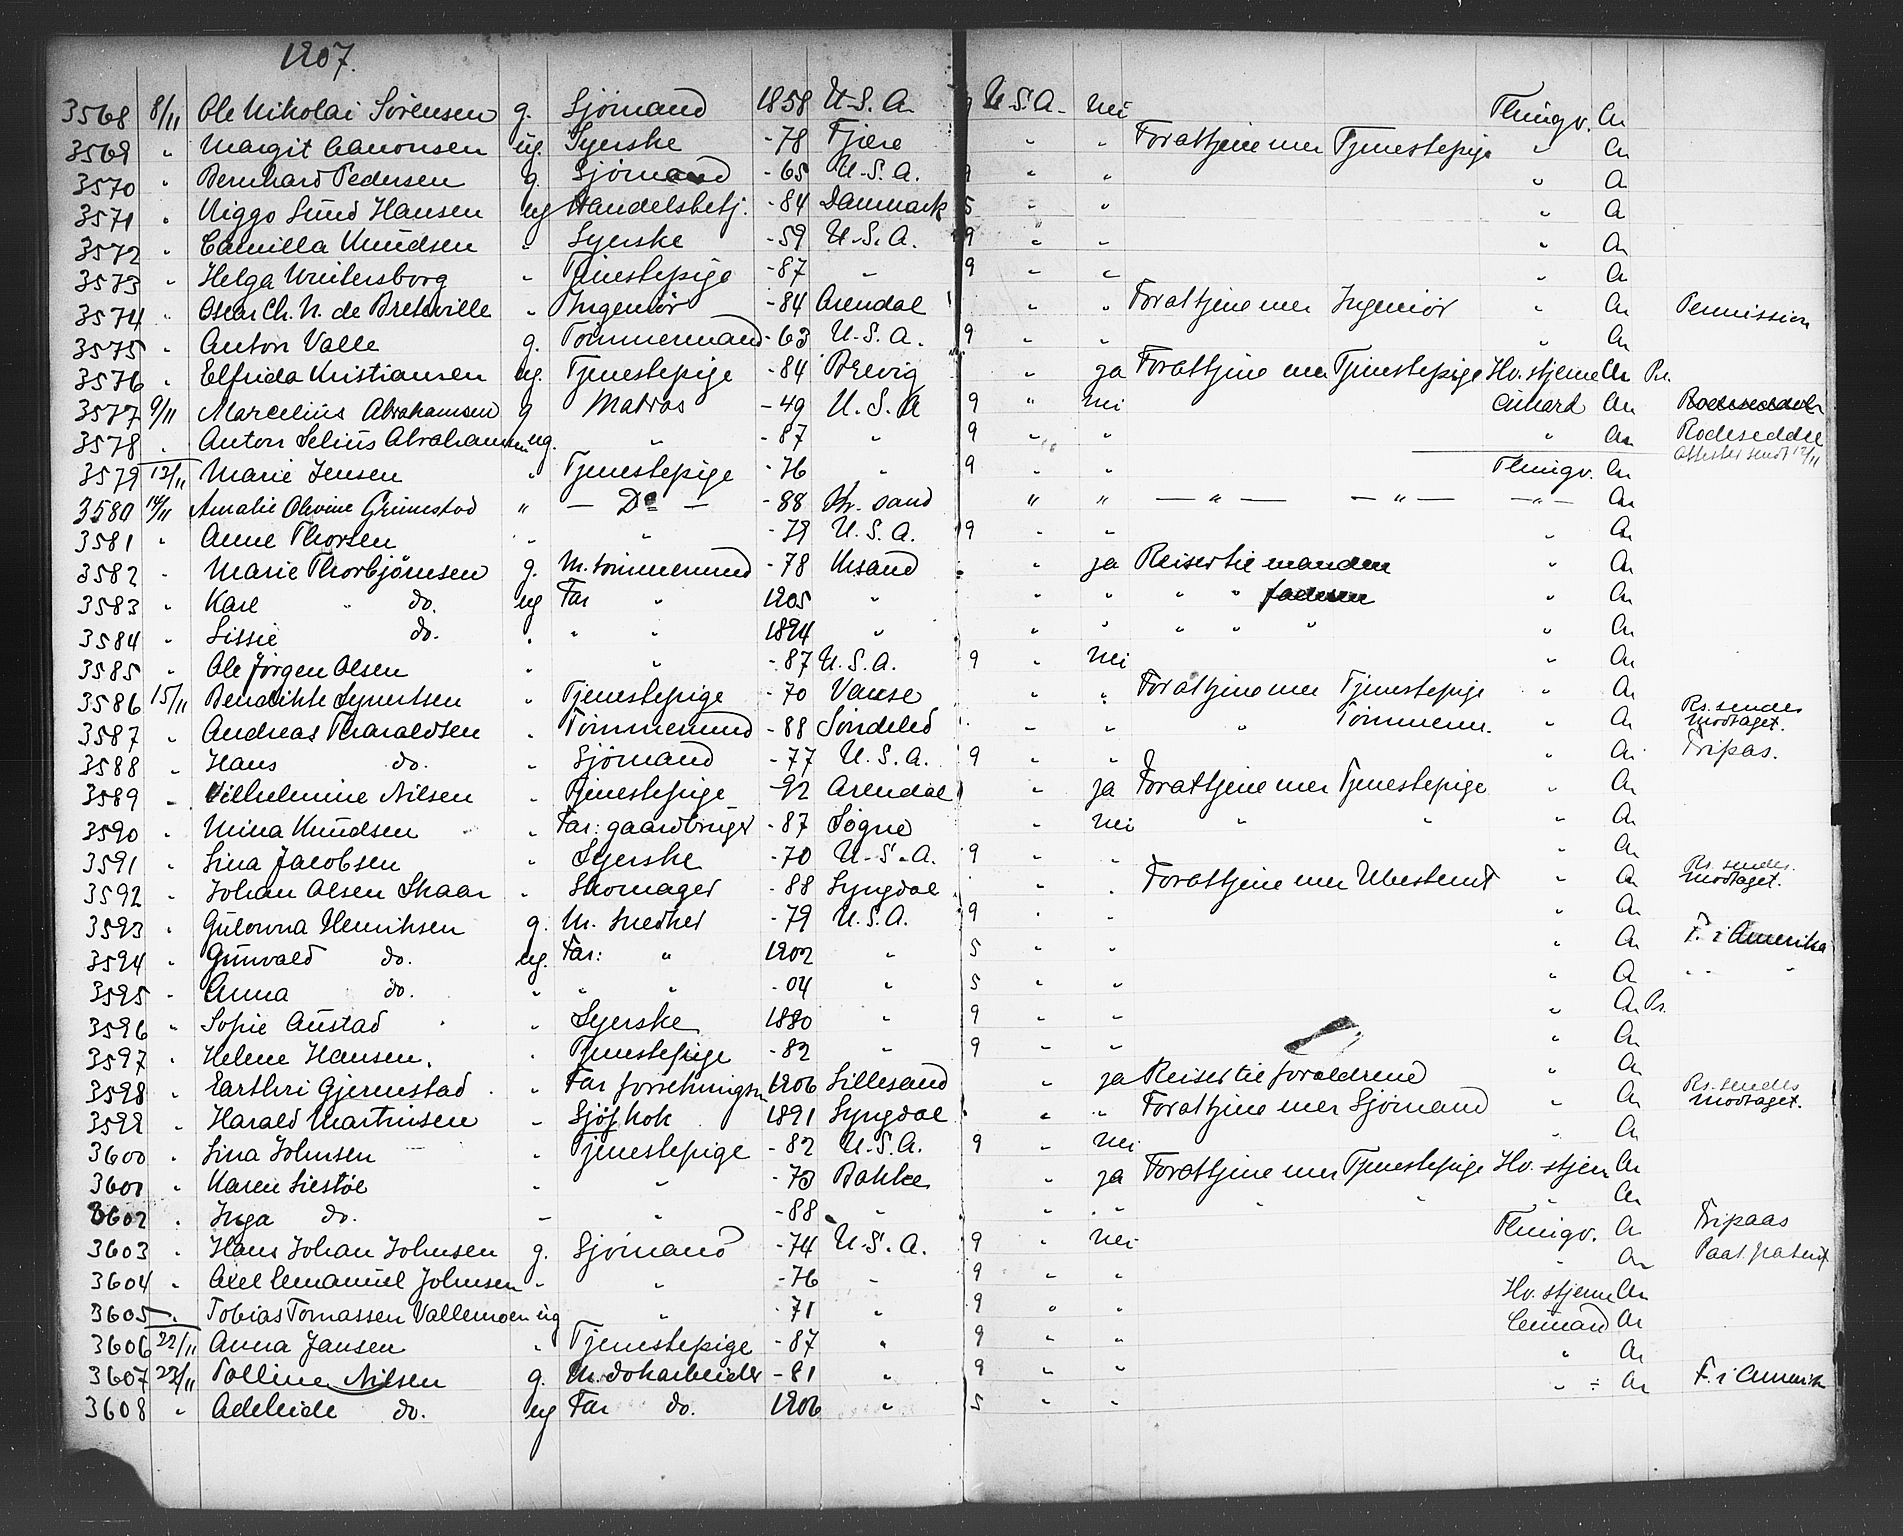 1907.
3568 8/11 Ole Nikolai Sørensen g. Sjömand 1858 U.S.A. 9 U.S.A. nei Thingv. An
3569 " Margit Aanonsen ug. Syerske -78 Fjære " " For at tjene mer Tjenestepige " An
3570 " Bernhard Pedersen g. Sjömand -65 U.S.A. 9 " " " A
3571 " Viggo Lund Hansen ug Handelsbetj. -84 Danmark 5 " " " A
3572 " Camilla Knudsen " Syerske -59 U.S.A. 9 " " " An
3573 " Helga Wintersborg " Tjenestepige -87 " 9 " " " A
3574 " Oscar Ch. N. de Bretteville " Ingeniør -84 Arendal " " For at tjene mer Ingeniør " An Permission
3575 " Anton Valle g. Tømmermand -63 U.S.A. 9 " " " An
3576 " Elfrida Kristiansen ug. Tjenestepige -84 Brevig " ja For at tjene mer Tjenestepige Hv. stjerne An Rs.
3577 9/11 Marcelius Abrahamsen g Matros -49 U.S.A 9 " nei Cunard An Rodeseddel
3578 " Anton Selius Abrahamsen ug. " -87 " 9 " " " An Rodeseddel
attester sendt 12/11
3579 13/11 Marie Jensen " Tjenestepige -76 " 9 " " Thingv. An
3580 14/11 Amalie Olivine Grimstad " — Do — -88 Kr. sand " " — " — — " — — " — An
3581 " Anne Thorsen " " -79 U.S.A. 9 " " " An
3582 " Marie Thorbjörnsen g. M. tømmermand -78 Krsand " ja Reiser til manden " An
3583 " Karl " do. ug Far " 1905 " " " " " faderen " An
3584 " Lissie do. " " " 1894 " " " " " " " An
3585 " Ole Jørgen Olsen " " -87 U.S.A. 9 " nei " An
3586 15/11 Bendikte Syvertsen " Tjenestepige -70 Vanse " " For at tjene mer Tjenestepige " An
3587 " Andreas Tharaldsen " Tømmermand -88 Söndeled " " " Tömmerm. " A Rs. sendes modtaget.
3588 " Hans do. " Sjömand -77 U.S.A. 9 " " " An Fripas.
3589 " Vilhelmine Nilsen " Tjenestepige -92 Arendal " ja For at tjene mer Tjenestepige " An
3590 " Mina Knudsen " Far: gaardbruger -87 Søgne " nei " " " An
3591 " Lina Jacobsen " Syerske -70 U.S.A. 9 " " " An
3592 " Johan Olsen Skaar " Skomager -88 Lyngdal " " For at tjene mer Ubestemt " An Rs. sendes. modtaget.
3593 " Gulowna Henriksen g. M. snedker -79 U.S.A. 9 " " " An
3594 " Gunvald do. ug. Far: " 1902 " 5 " " " An F. i Amerika
3595 " Anna do. " " " -04 " 5 " " " A " " "
3596 " Sofie Austad " Syerske 1880 " 9 " " " An Rs.
3597 " Helene Hansen. " Tjenestepige -82 " 9 " " " An
3598 " Gjermstad " Far 1906 Lillesand " ja Reiser til forældrene " An
3599 " Harald Martinsen " Sjöf kok 1891 Lyngdal " " For at tjene mer Sjömand " An Rs. sendes modtaget.
3600 " Lina Johnsen " Tjenestepige -82 U.S.A. 9 " nei " An
3601 " Karen Liestøl " " -73 Bakke " ja For at tjene mer Tjenestepige Hv. stjern An
3602 " Inga do. " " -88 " " " " " " An
3603 " Hans Johan Johnsen g. Sjömand -74 U.S.A. 9 " nei Thingv. A Fripaas
3604 " Axel Emanuel Johnsen " " -76 " 9 " " " An
3605 " Tobias Tomassen Vallemoen ug " -71 " 9 " " Hv. stjerne An
3606 22/11 Anna Jansen " Tjenestepige -87 " 9 " " Cunard An
3607 23/11 Polline Nilsen g. M. dokarbeider -81 " 9 " " " An
3608 " Adelheide do. ug Far do. 1906 " 5 " " " An F. i Amerik